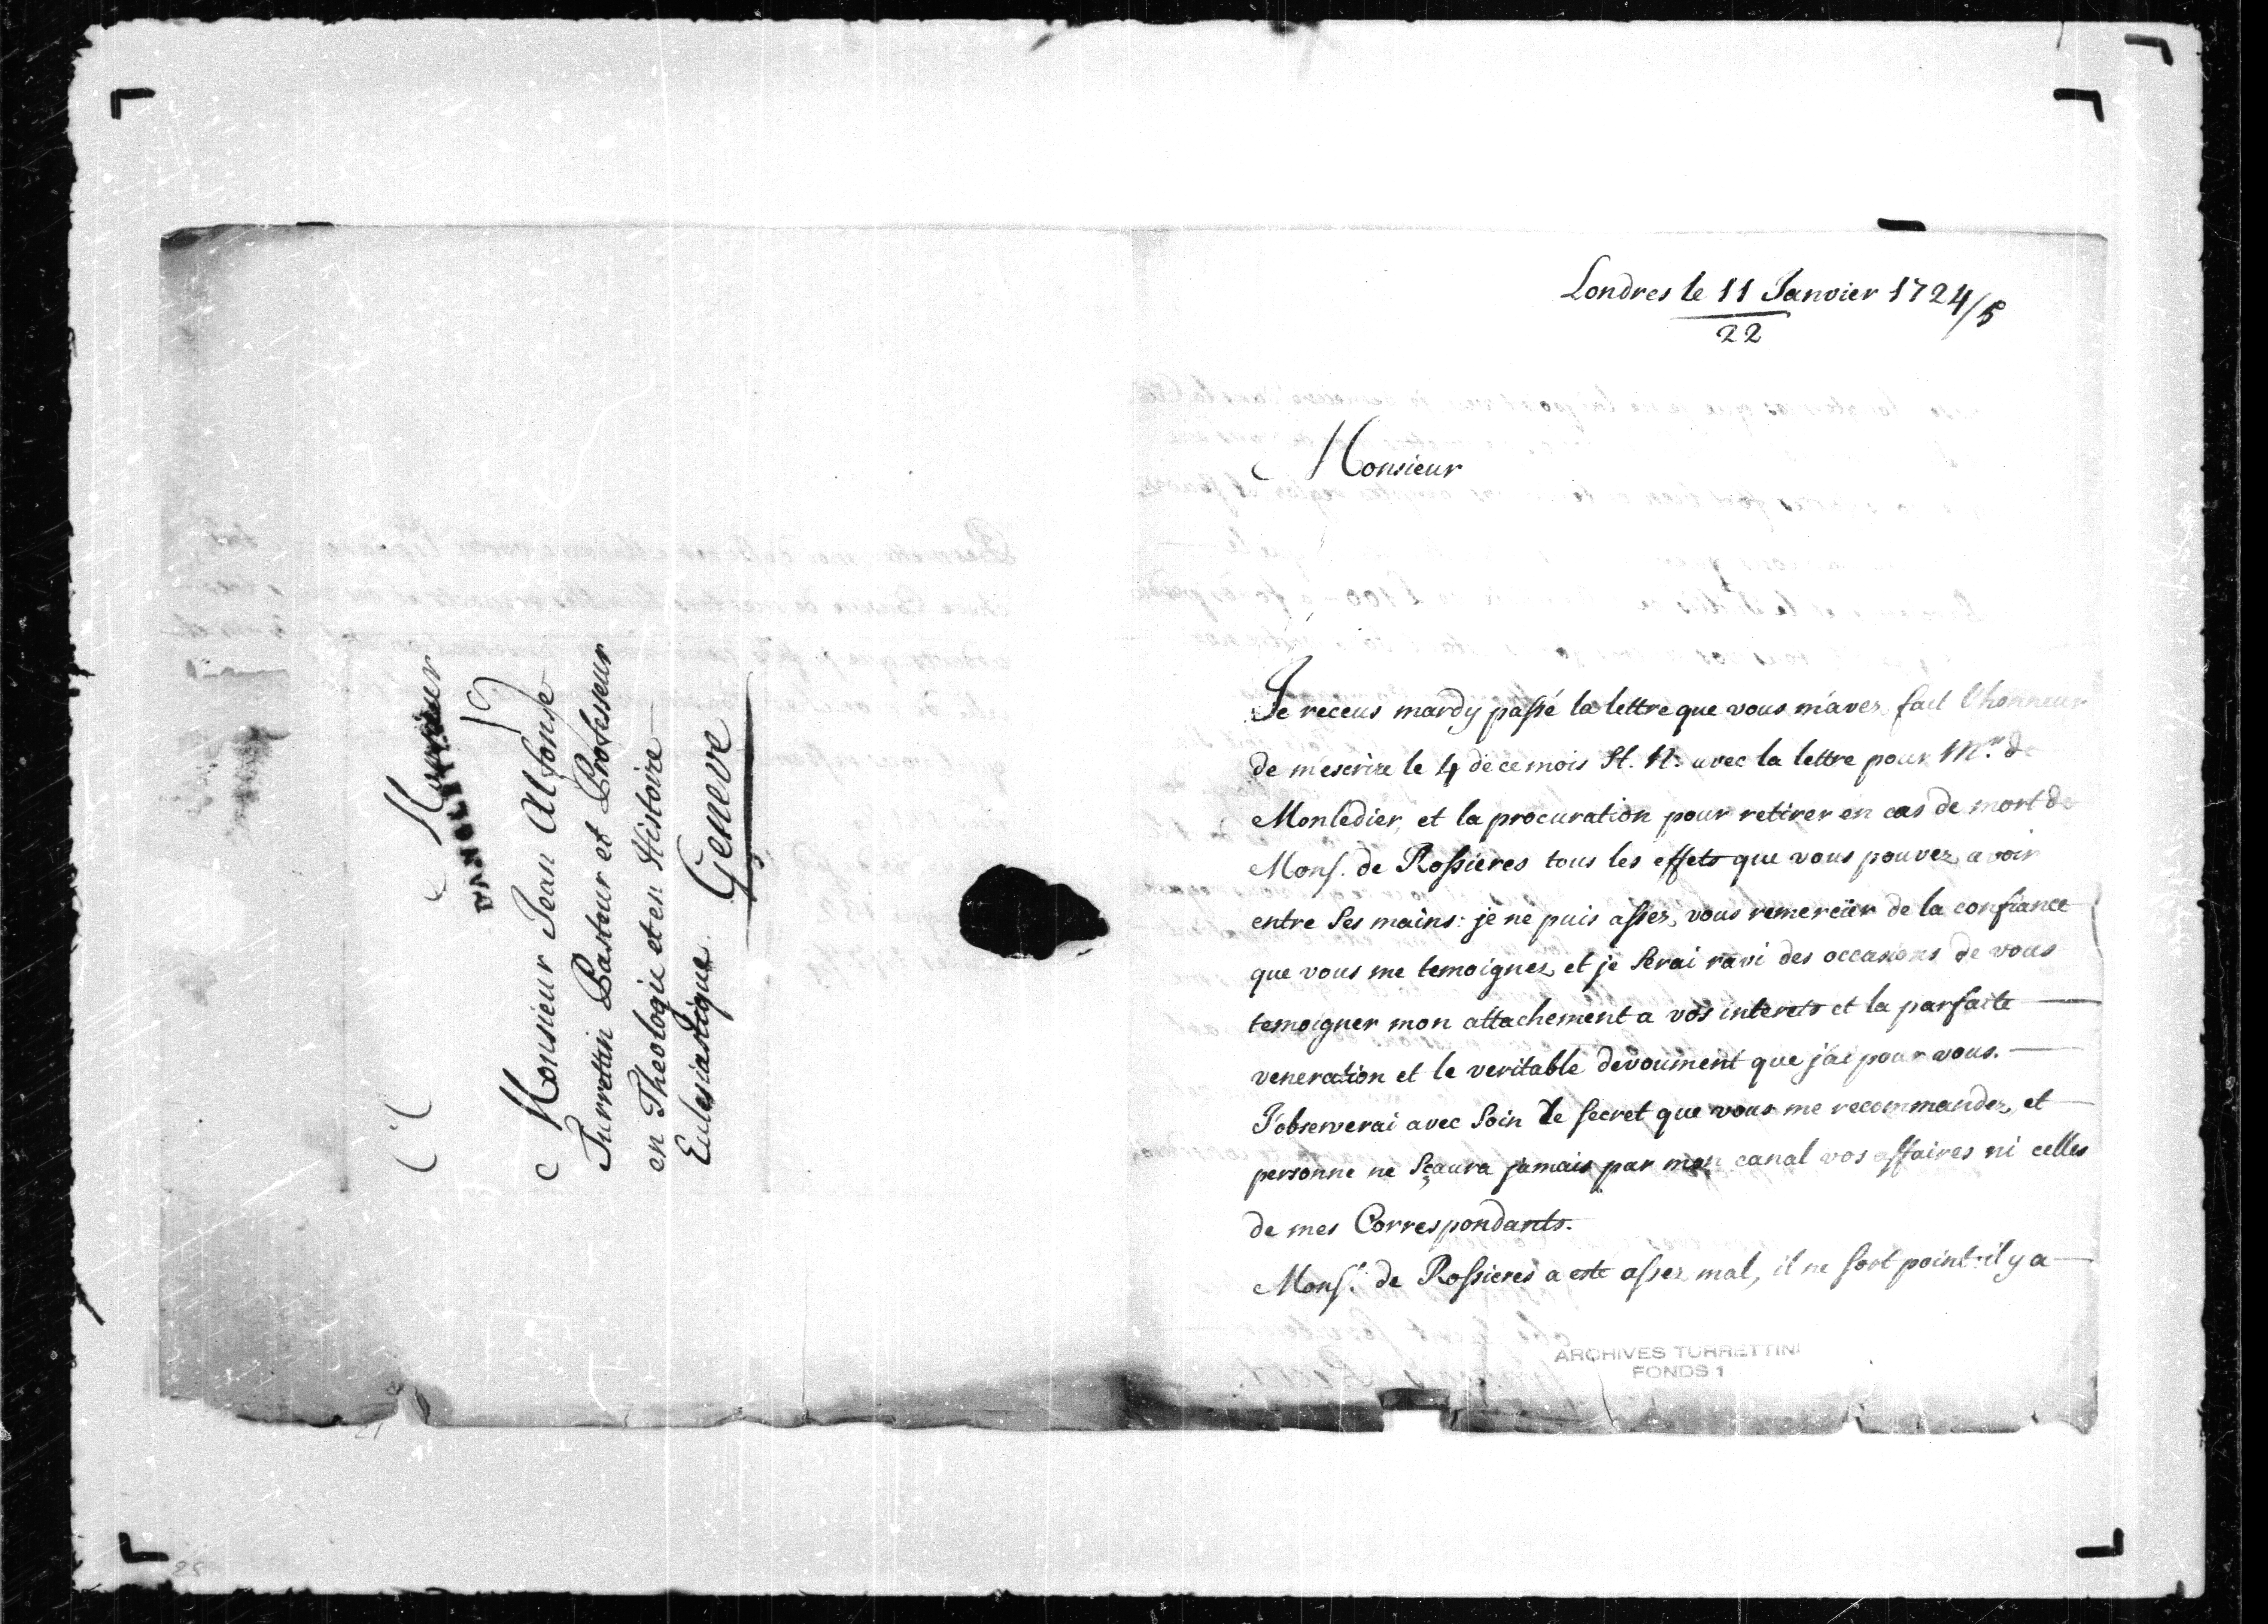 Monsieur
D'ANGLETERRE
Monsieur Jean Alfonse
Turrettin Pasteur et Professeur
en Theologie et en Histoire
Eclesiastique.
Geneve
Londres le 11 Janvier 1724/5
22
Monsieur
Je receus mardy passé la lettre que vous m'avez fait l'honneur
de m'escrire le 4 de ce mois St. N. avec la lettre pour Mr. de
Monledier, et la procuration pour retirer en cas de mort de
Mons. de Rossieres tous les effets que vous pouvez avoir
entre ses mains: je ne puis assez vous remercier de la confiance
que vous me temoignez et je serai ravi des occasions de vous
temoigner mon attachement a vos interets et la parfaite
veneration et le veritable devoument que j'ai pour vous.
J'observerai avec soin le secret que vous me recommandez, et
personne ne sçaura jamais par mon canal vos affaires ni celles
de mes Correspondants.
Mons.r de Rossieres a este assez mal, il ne sort point: il y a
ARCHIVES TURRETTINI
FONDS 1